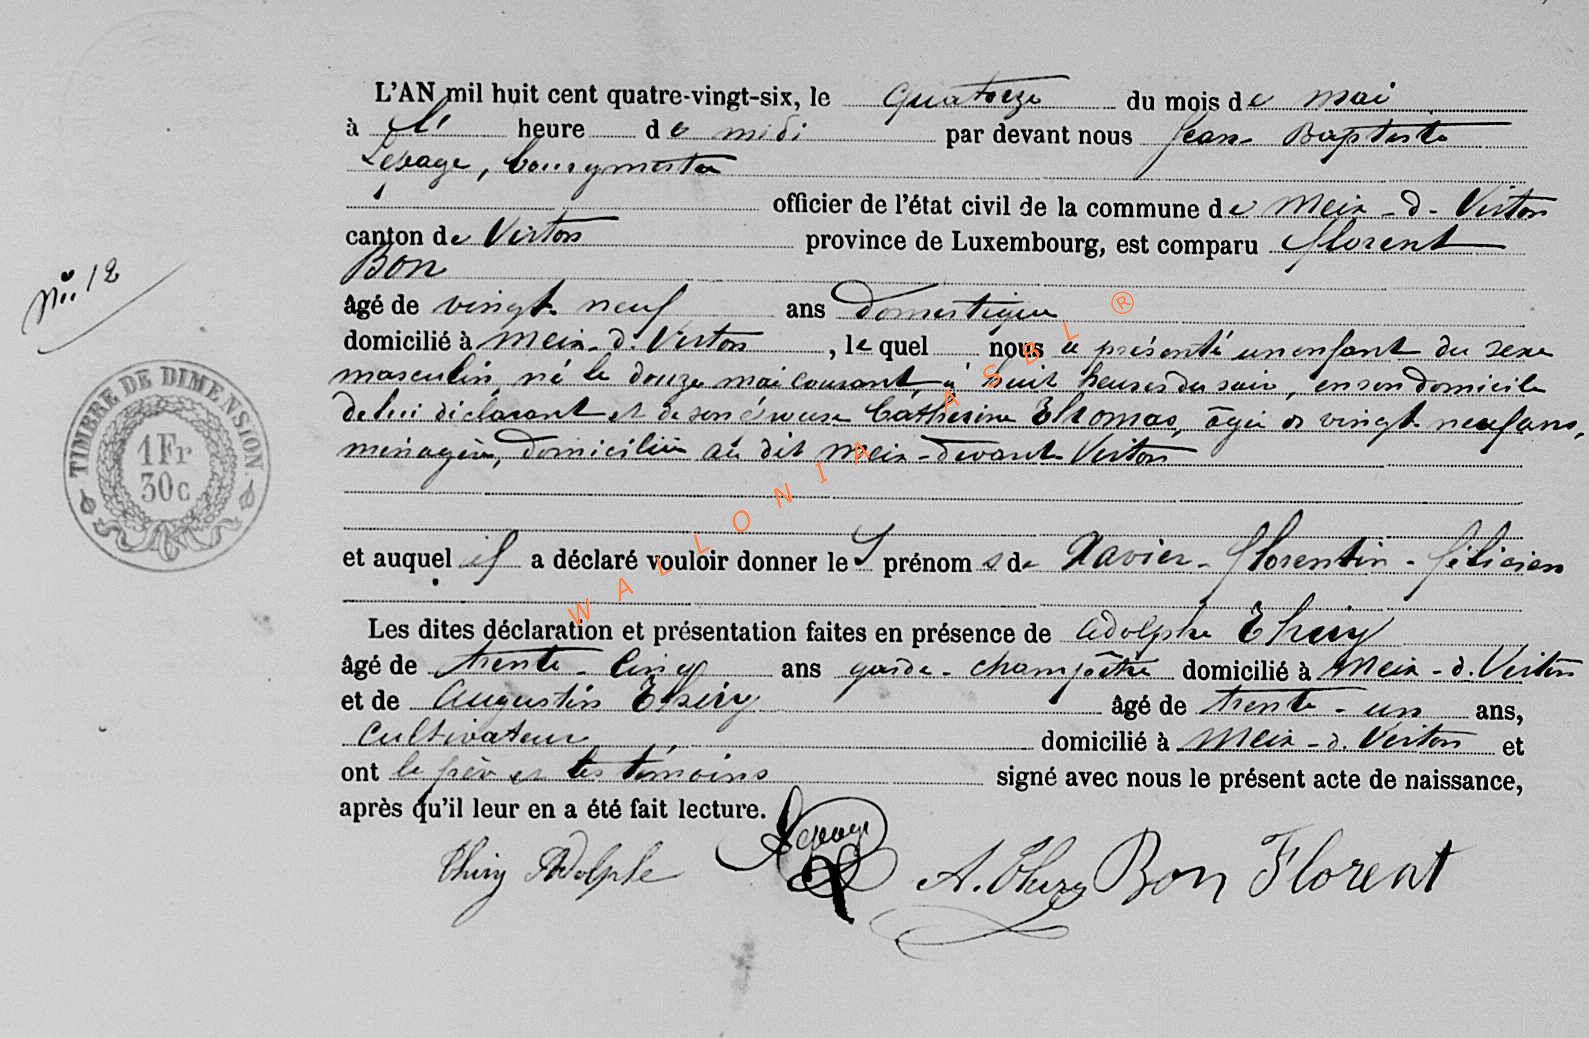 L'AN mil huit cent quatre-vingt-six, le quatorze du mois de mai
à l' heure de midi par devant nous Jean Baptiste
Lepage, bourgmestre
officier de l'état civil de la commune de Meix-d-Virton
canton de Virton province de Luxembourg, est comparu Florent
Bon
âgé de vingt neuf ans domestique
domicilié à Meix-d. Virton, le quel nous a présenté un enfant du sexe
masculin, né le douze mai courant, à huit heures du soir, en son domicile
de lui déclarant et de son épouse Catherine Thomas, âgée de vingt neuf ans,
ménagère, domiciliée au dit Meix-devant Virton
N° 12
TIMBRE DE DIMENSION.
1 Fr
30 c
et auquel il a déclaré vouloir donner les prénoms de Xavier-Florentin-Félicien
Les dites déclaration et présentation faites en présence de Adolphe Thiry
âgé de trente-cinq ans garde-champêtre domicilié à Meix-d. Virton
et de Augustin Thiry âgé de trente-un ans,
cultivateur domicilié à Meix-d. Virton et
ont le père et les témoins signé avec nous le présent acte de naissance,
après qu'il leur en a été fait lecture.
Thiry Adolphe Lepage A. Thiry Bon Florent
WALLONIA ASBL ®